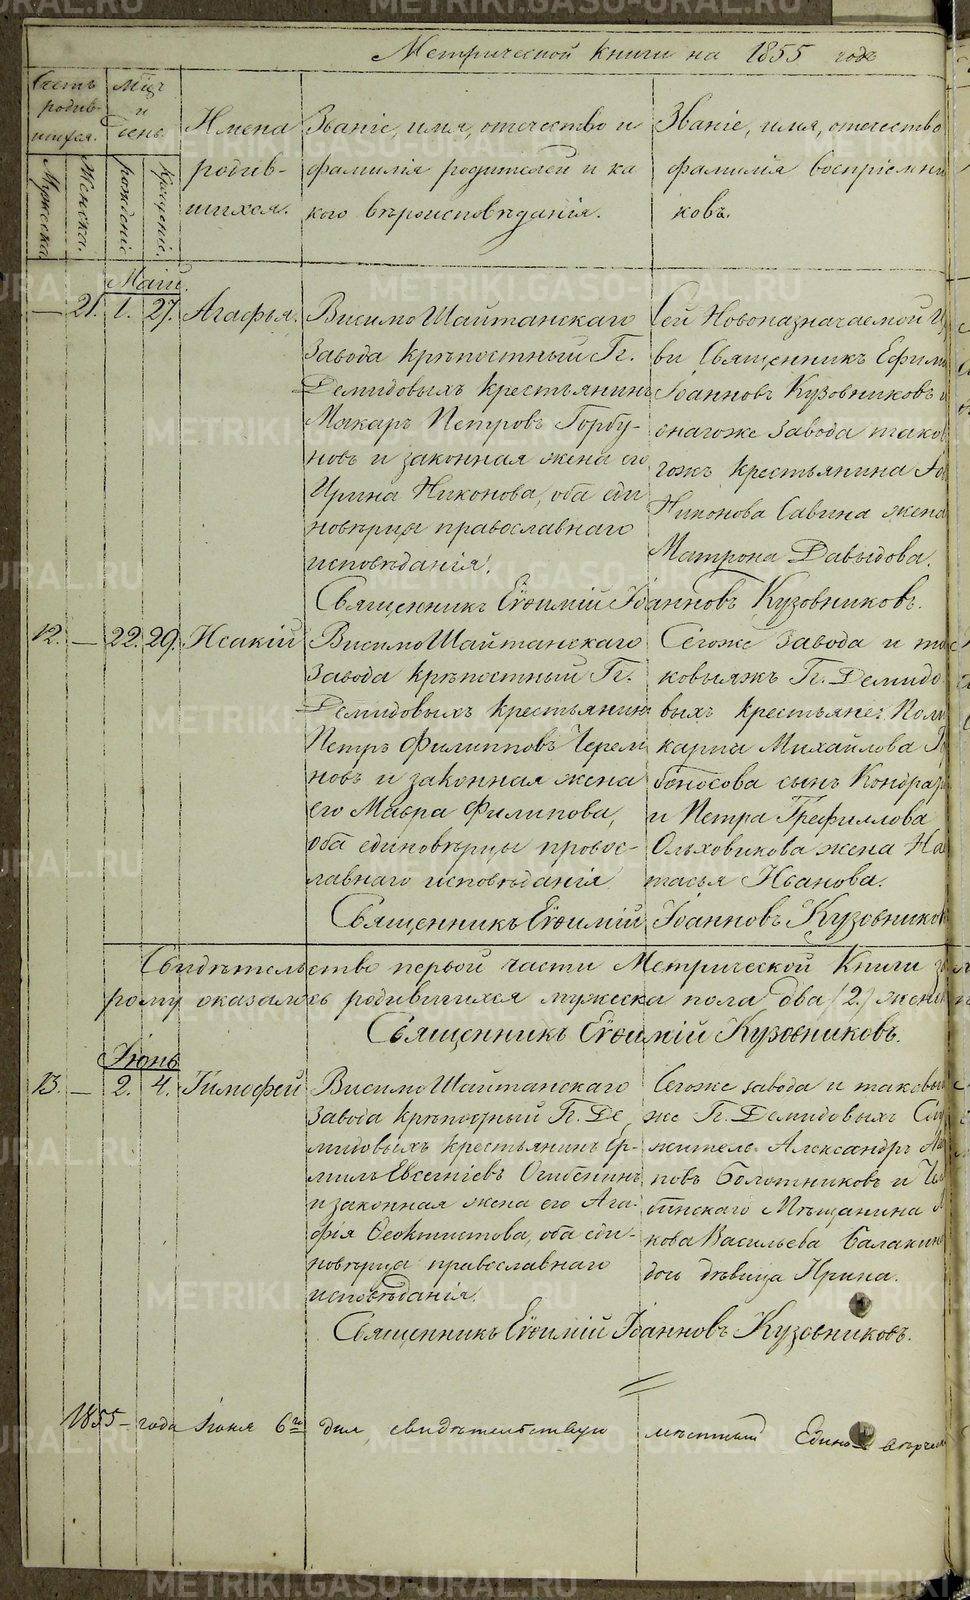 Метрической книги на 1855 годъ
Счетъ родив-
шихся.
Мужеска
Женска.
Мцъ
и
день
рожденіе
крещеніе.
Имена
родив-
шихся.
Званіе, имя, отечество и
фамилія родителей и ка
кого вѣроисповѣданія.
Званіе, имя, отечество
фамилія воспріемни
ковъ.
Маій.
— 21. 1. 27. Агафья.
Висимо Шайтанскаго
завода крѣпостный Гг.
Демидовыхъ крестьянинъ
Макаръ Петровъ Горбу-
новъ и законная жена его
Ирина Никонова, оба еди
новѣрцы православнаго
исповѣданія.
Сей Новоназначаемой Ц
ви Священникъ Ефимъ
Іоанновъ Кузовниковъ и
онагоже завода тако
гожъ крестьянина
Никонова Савина жена
Матрона Давыдова.
Священникъ Евѳимій Іоанновъ Кузовниковъ.
12. — 22. 29. Исакій
Висимо Шайтанскаго
завода крѣпостный Гг.
Демидовыхъ крестьянинъ
Петръ Филипповъ Черем
новъ и законная жена
его Мавра Филипова,
оба единовѣрцы правос-
лавнаго исповѣданія
Сегоже завода и та
ковыхжъ Гг. Демидо
выхъ крестьяне: Поли
карпа Михайлова
боносова сынъ Кондра
и Петра Трефиллова
Ольховикова жена На
тасья Иванова.
Священникъ Евѳимій Іоанновъ Кузовников
Свидѣтельство первой части Метрической Книги
рому оказалось родившихся мужеска пола два (2) жен
Священникъ Евѳимій Кузовниковъ.
Іюнь
13. — 2. 4. Тимофей
Висимо Шайтанскаго
завода крѣпостный Гг. Де
мидовыхъ крестьянинъ Ер-
милъ Евсегніевъ Огибенинъ
и законная жена его Ага-
фія Ѳеоктистова, оба еди-
новѣрца православнаго
исповѣданія.
Сегоже завода и таковы
же Гг. Демидовыхъ
житель Александръ
повъ Болотниковъ и
бинскаго Мѣщанина
нова Васильева Балакин
дочь дѣвица Ирина.
Священникъ Евѳимій Іоанновъ Кузовниковъ.
1855- года Іюня 6го дня, свидѣтельствую мѣстный Единовѣрче
METRIKI.GASO-URAL.RU